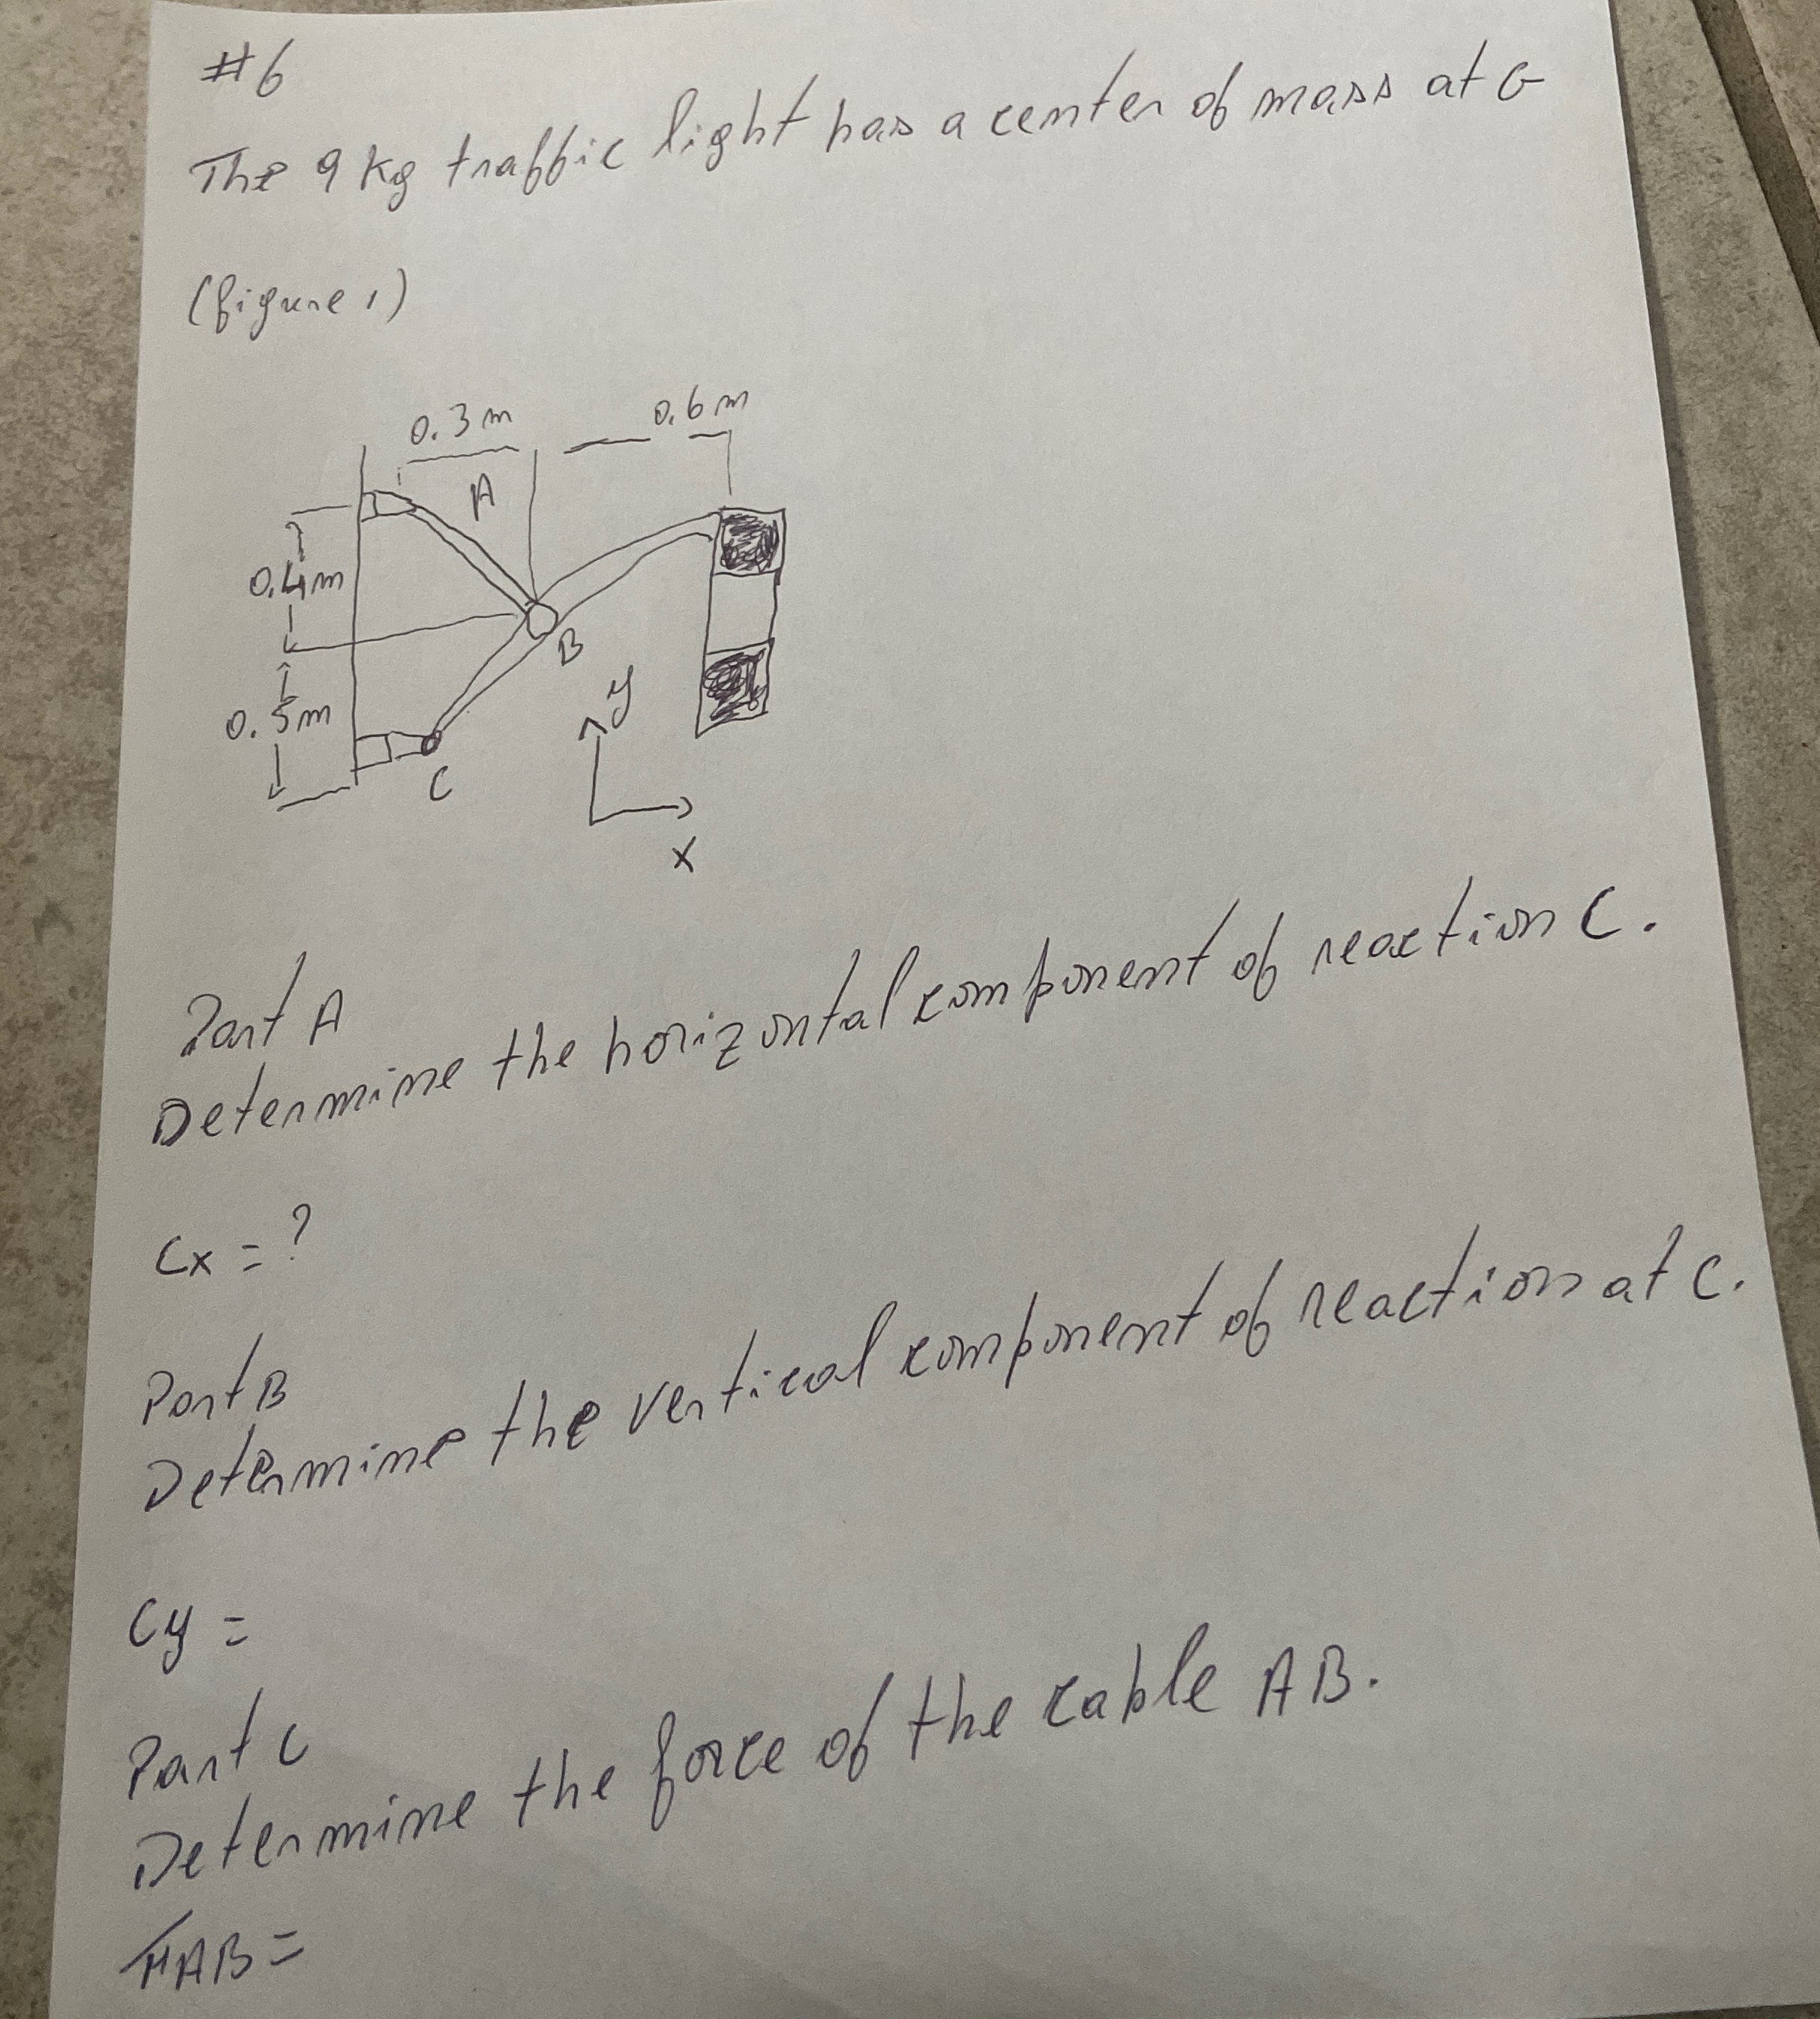 #6
The 9 kg traffic light has a center of mass at G
(figure 1)
0.3m 0.6m
A
0.4m
B
0.5m
y
C
x
Part A
Determine the horizontal component of reaction C.
Cx = ?
Part B
Determine the vertical component of reaction at C.
Cy =
Part C
Determine the force of the cable AB.
FAB =